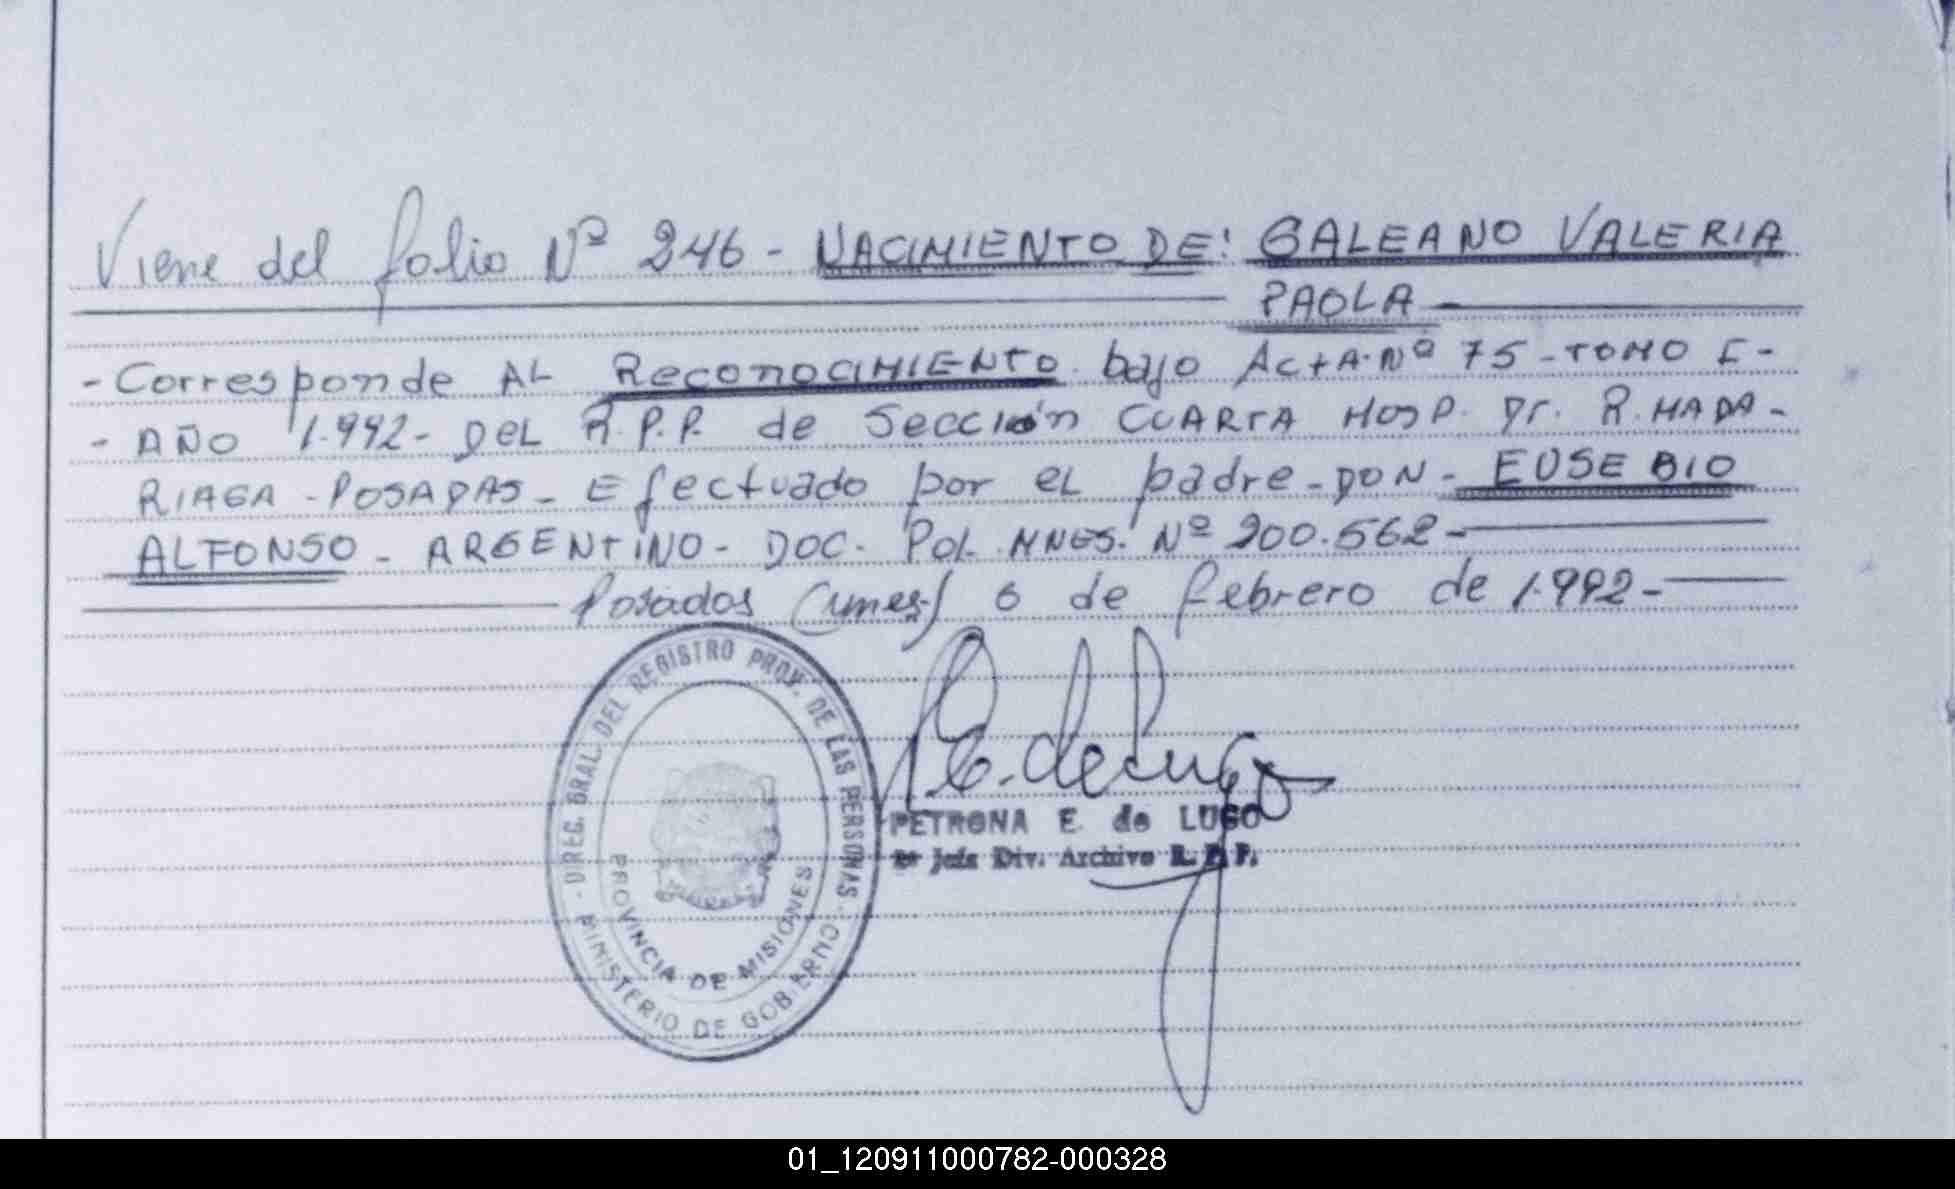 Viene del folio Nº 246 - NACIMIENTO DE: GALEANO VALERIA
PAOLA -
- Corresponde AL Reconocimiento bajo ActA. Nº 75 - TOMO E -
- AÑO 1.992 - DEL R.P.P. de Sección CUARTA HOSP. Dr. R. MADA-
RIAGA - POSADAS - Efectuado por el padre - DON - EUSEBIO
ALFONSO - ARGENTINO - DOC. Pol. MNES. Nº 200.562 -
Posadas (Mnes.) 6 de febrero de 1.992 -
DREG. GRAL. DEL REGISTRO PROV. DE LAS PERSONAS
MINISTERIO DE GOBIERNO
PROVINCIA DE MISIONES
P E. de Lugo
PETRONA E. de LUGO
Jefa Div. Archivo R. P. P.
01_120911000782-000328